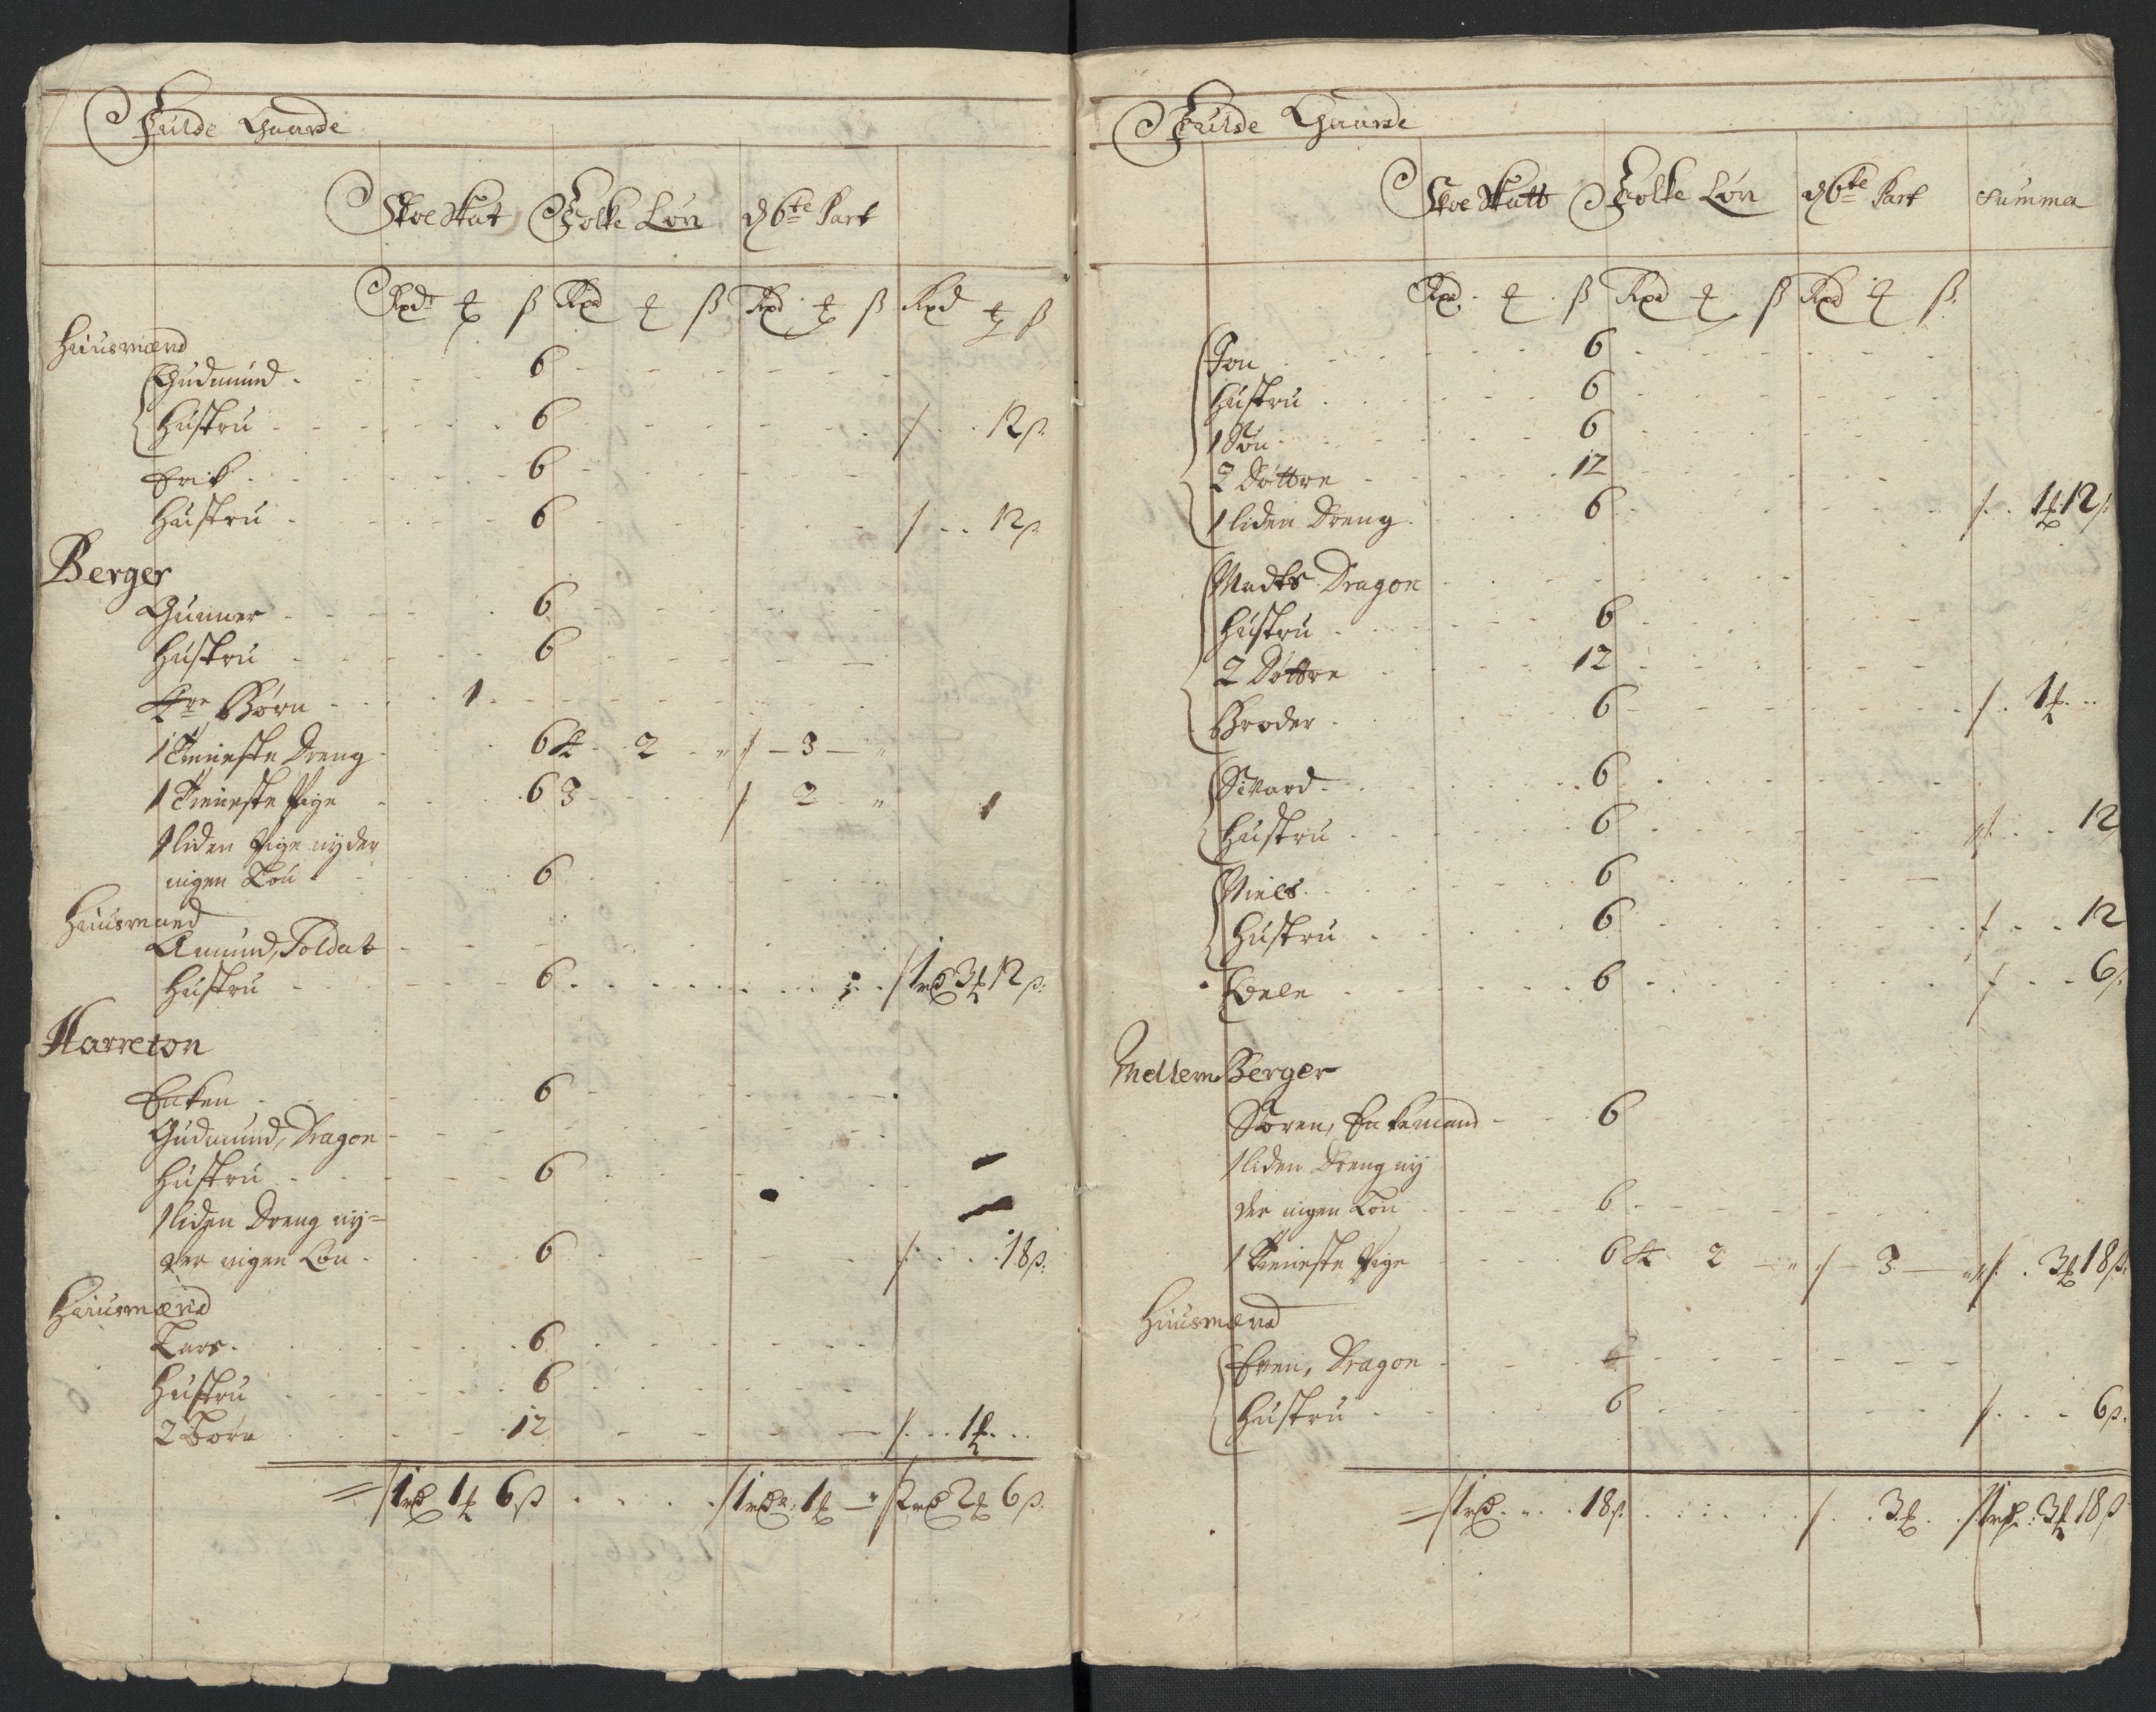 Fulde Gaarde
Skoe Skat Folke Løn d 6te Part
Rxdr ß Rxd ß Rxd ß Rxd ß
Huusmænd
Gudmund 6
Hustru 6 12 ß
Erik 6
Hustru 6 12 ß
Berger
Gunner 6
Hustru 6
Børn 1
1 Tieneste Dreng 6 2 3
1 Tieneste Pige 6 3 2 1
1 liden Pige nyder
ingen Løn 6
Huusmand
Amund, Soldat
Hustru 6 1 rd 3 12 ß
Harreton
Enken 6
Gudmund, Dragon
Hustru 6
1 liden Dreng ny=
der ingen Løn 6 18 ß
Huusmænd
Lars 6
Hustru 6
2 Børn 12 1
1 rd 1 6 ß 1 rd 1 2 rd 2 6 ß
Fulde Gaarde
Skoe Skatt Folke Løn d 6te Part Summa
Rxd ß Rxd ß Rxd ß
Jon 6
Hustru 6
1 Søn 6
2 Døttre 12
1 liden Dreng 6 1 12 ß
Madts Dragon
Hustru 6
2 Døttre 12
Broder 6 1
Sivard 6
Hustru 6 12
Niels 6
Hustru 6 12
6 6 ß
Mellem Berger
Søren, Enkemand 6
1 liden Dreng ny
der ingen Løn 6
1 Tieneste Pige 6 2 3 3 18 ß
Huusmænd
Even, Dragon
Hustru 6 6 ß
1 rd 18 ß 3 1 rd 3 18 ß